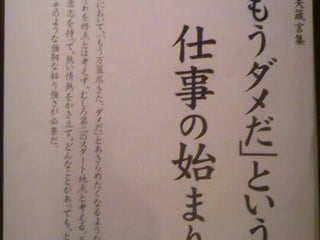 夫箴言集
もうダメだ」という
仕事の始まり
において、「もう万策尽きた、ダメだ」とあきらめたくなるような
れを終点とは考えず、むしろ第二のスタート地点と考える。そ
意志を持って、熱い情熱をかき立て、どんなことがあっても、と
そのような強靭な粘り強さが必要だ。